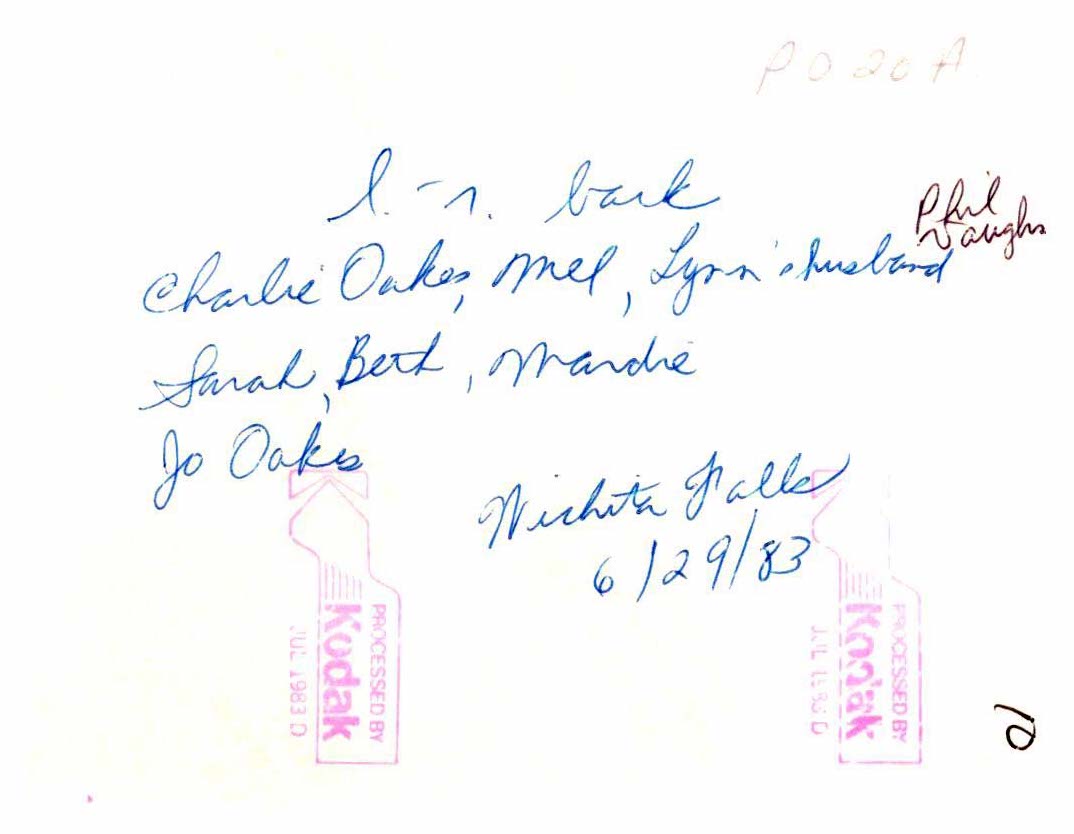 PO 20 A
l. - r. back
Phil
Vaughn
Charlie Oakes, Mel, Lynn's husband
Sarah, Beth, Mardie
Jo Oakes
Wichita Falls
6/29/83
PROCESSED BY
Kodak
JUL 1983 D
PROCESSED BY
Kodak
JUL 1983 D